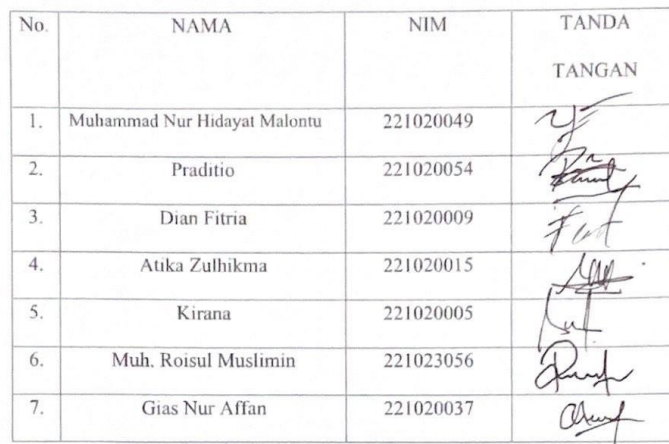 No. NAMA NIM TANDA
TANGAN
1. Muhammad Nur Hidayat Malontu 221020049
2. Praditio 221020054
3. Dian Fitria 221020009
4. Atika Zulhikma 221020015
5. Kirana 221020005
6. Muh. Roisul Muslimin 221023056
7. Gias Nur Affan 221020037